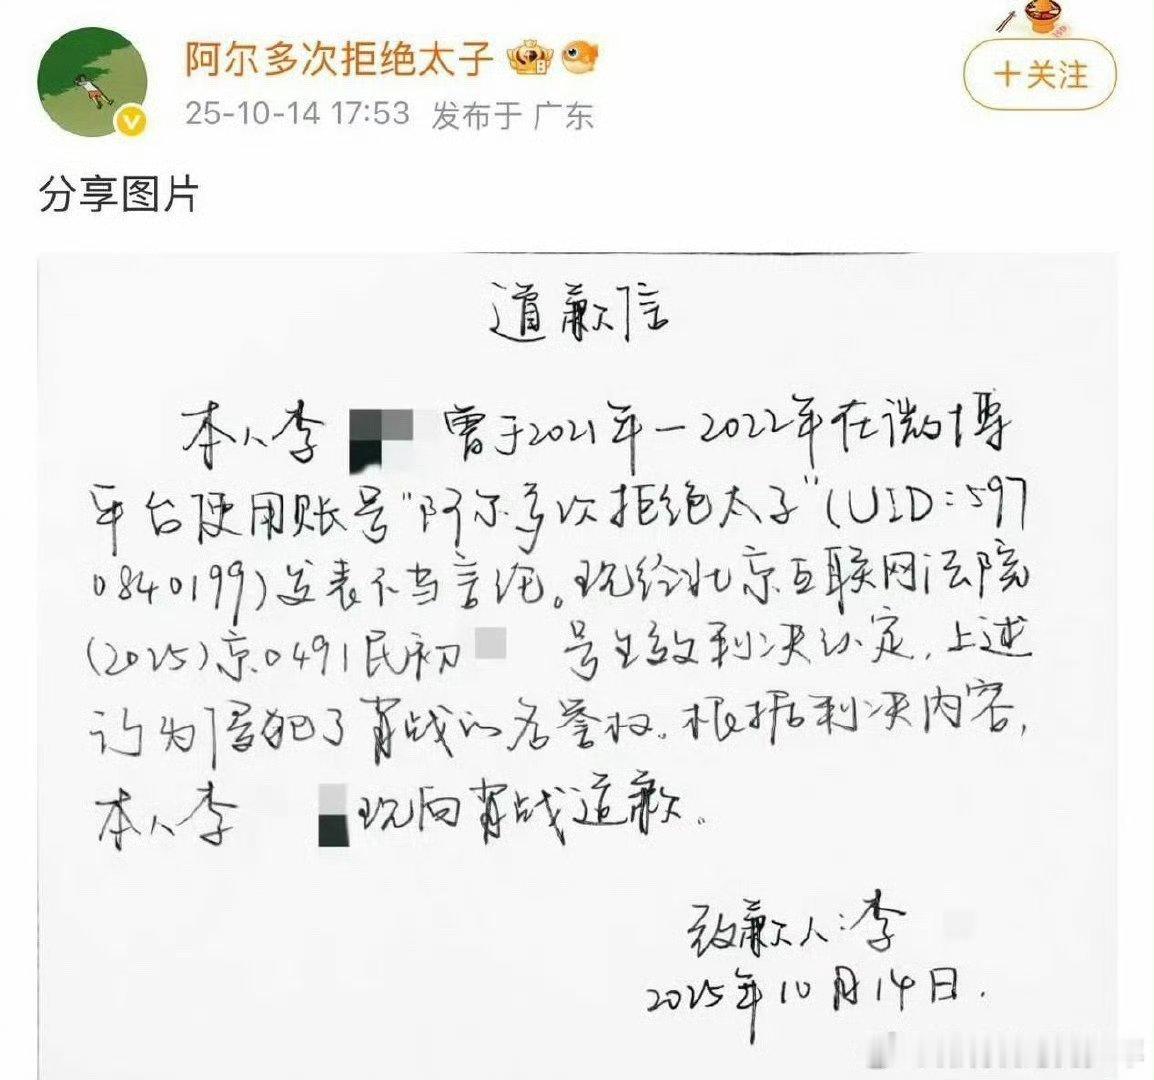 阿尔多次拒绝太子
25-10-14 17:53 发布于 广东
十关注
分享图片
道歉信
本人李 曾于2021年-2022年在微博
平台使用账号"阿尔多次拒绝太子"(UID:597
0840199)发表不当言论。现经北京互联网法院
(2025)京0491民初 号生效判决认定,上述
行为侵犯了肖战的名誉权。根据判决内容,
本人李 现向肖战道歉。
致歉人:李
2025年10月14日.